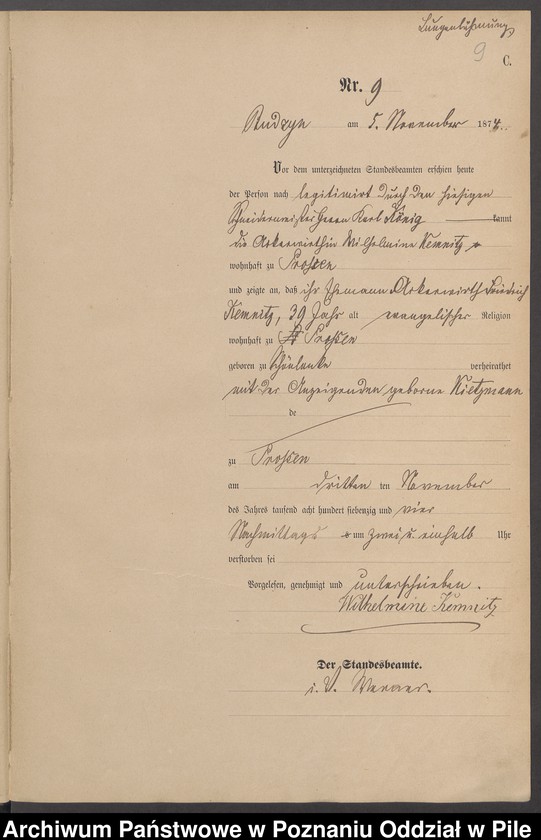 9
C.
Nr. 9
Budzyn am 5. November 1874.
Vor dem unterzeichneten Standesbeamten erschien heute
der Person nach legitimirt durch den hiesigen
Schneidermeister Herrn Karl König kannt
die Ackerwirthin Wilhelmine Kemnitz
wohnhaft zu Prossen
und zeigte an, daß ihr Ehemann Ackerwirth Friedrich
Kemnitz, 39 Jahr alt evangelischer Religion
wohnhaft zu Prossen
geboren zu Schönlanke verheirathet
mit der Anzeigenden, geborne Kietzmann
de
zu Prossen
am dritten ten November
des Jahres tausend acht hundert siebenzig und vier
Nachmittags um zwei u. einhalb Uhr
verstorben sei
Vorgelesen, genehmigt und unterschrieben.
Wilhelmine Kemnitz
Der Standesbeamte.
i. V. Werner.
Archiwum Państwowe w Poznaniu Oddział w Pile